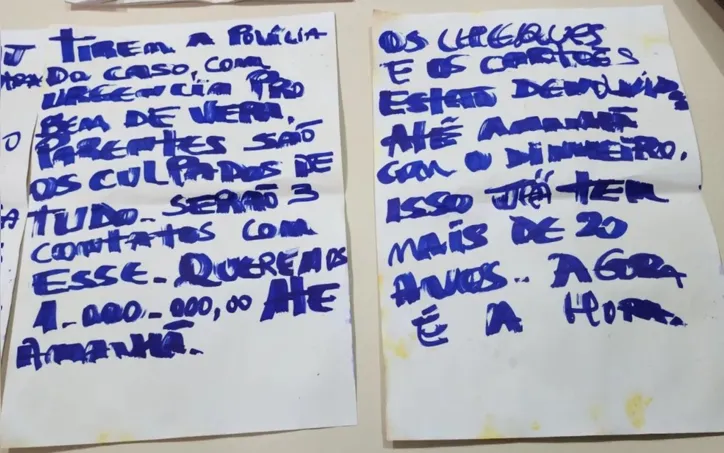 TIREM A POLÍCIA
DO CASO, COM
URGENCIA PRO
BEM DE VERA,
PARENTES SAO
OS CULPADOS DE
TUDO. SERÃO 3
CONTATOS COM
ESSE. QUEREMOS
1.000.000,00 ATE
AMANHÃ.
OS CHEQUES
E OS CARTÕES
ESTÃO DEVOLVIDOS
ATÉ AMANHÃ
COM O DINHEIRO.
ISSO JÁ TEM
MAIS DE 20
ANOS.. AGORA
É A HORA.